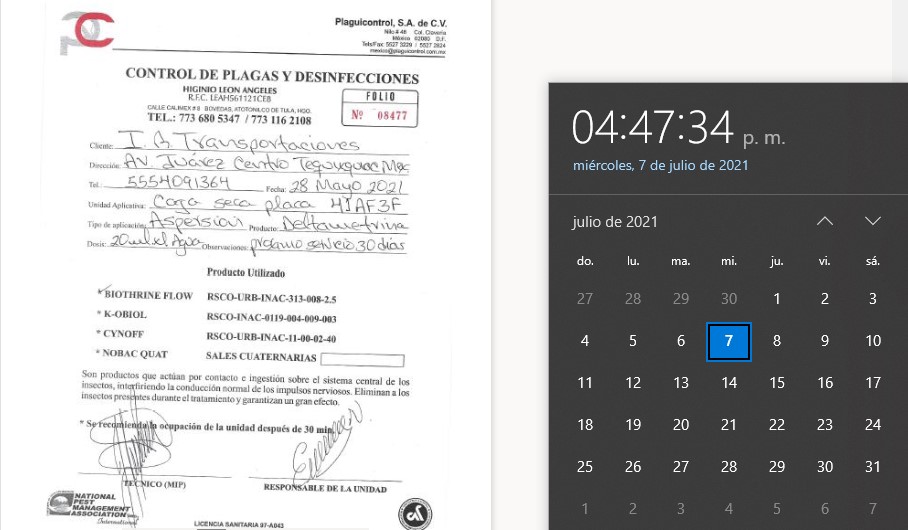 PC
Plaguicontrol, S.A. de C.V.
Nilo # 46 Col. Clavería
México 02080 D.F.
Tels/Fax: 5527 3229 / 5527 2824
mexico@plaguicontrol.com.mx
CONTROL DE PLAGAS Y DESINFECCIONES
HIGINIO LEON ANGELES
R.F.C. LEAH561121CE8
CALLE CALIMEX # 8 BOVEDAS, ATOTONILCO DE TULA, HGO.
TEL.: 773 680 5347 / 773 116 2108
FOLIO
Nº 08477
Cliente: I.B. Transportaciones
Dirección: AV. Juárez Centro Tequixquiac Mex
Tel.: 5554091364 Fecha: 28 Mayo 2021
Unidad Aplicativa: Caja seca placa 41AF3F
Tipo de aplicación: Aspersión Producto: Deltametrina
Dosis: 20ml.xl.Agua Observaciones: próximo servicio 30 días
Producto Utilizado
* BIOTHRINE FLOW RSCO-URB-INAC-313-008-2.5
* K-OBIOL RSCO-INAC-0119-004-009-003
* CYNOFF RSCO-URB-INAC-11-00-02-40
* NOBAC QUAT SALES CUATERNARIAS
Son productos que actúan por contacto e ingestión sobre el sistema central de los
insectos, interfiriendo la conducción normal de los impulsos nerviosos. Eliminan a los
insectos presentes durante el tratamiento y garantizan un gran efecto.
* Se recomienda la ocupación de la unidad después de 30 min.
TÉCNICO (MIP)
RESPONSABLE DE LA UNIDAD
NATIONAL
PEST
MANAGEMENT
ASSOCIATION
International
LICENCIA SANITARIA 97-A043
04:47:34 p. m.
miércoles, 7 de julio de 2021
julio de 2021
do. lu. ma. mi. ju. vi. sá.
27 28 29 30 1 2 3
4 5 6 7 8 9 10
11 12 13 14 15 16 17
18 19 20 21 22 23 24
25 26 27 28 29 30 31
1 2 3 4 5 6 7